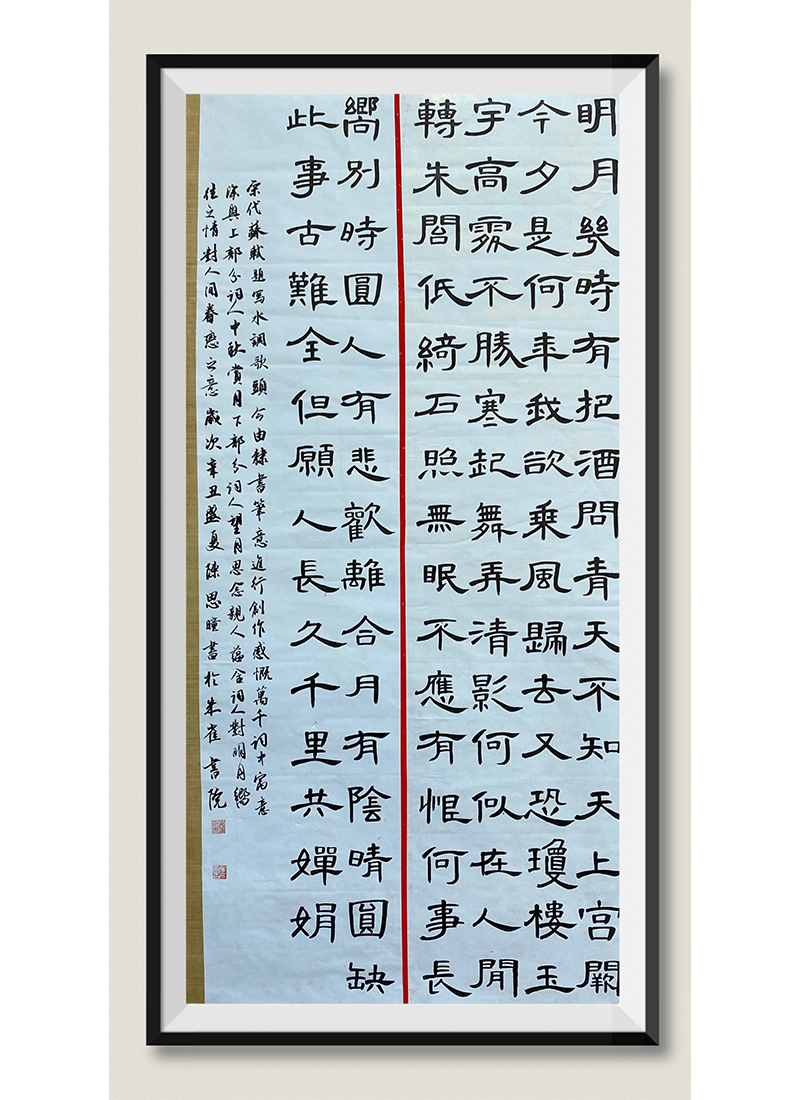 明月幾時有把酒問青天不知天上宮闕
今夕是何年我欲乘風歸去又恐瓊樓玉
宇高處不勝寒起舞弄清影何似在人間
轉朱閣低綺石照無眠不應有恨何事長
嚮別時圓人有悲歡離合月有陰晴圓缺
此事古難全但願人長久千里共嬋娟
宋代蘇軾題寫水調歌頭今由隸書筆意進行創作感慨萬千詞中富意
深奧上部分詞人中秋賞月下部分詞人望月思念親人蘊含詞人對明月嚮
往之情對人間眷戀之意歲次辛丑盛夏陳思瞳書於朱雀書院